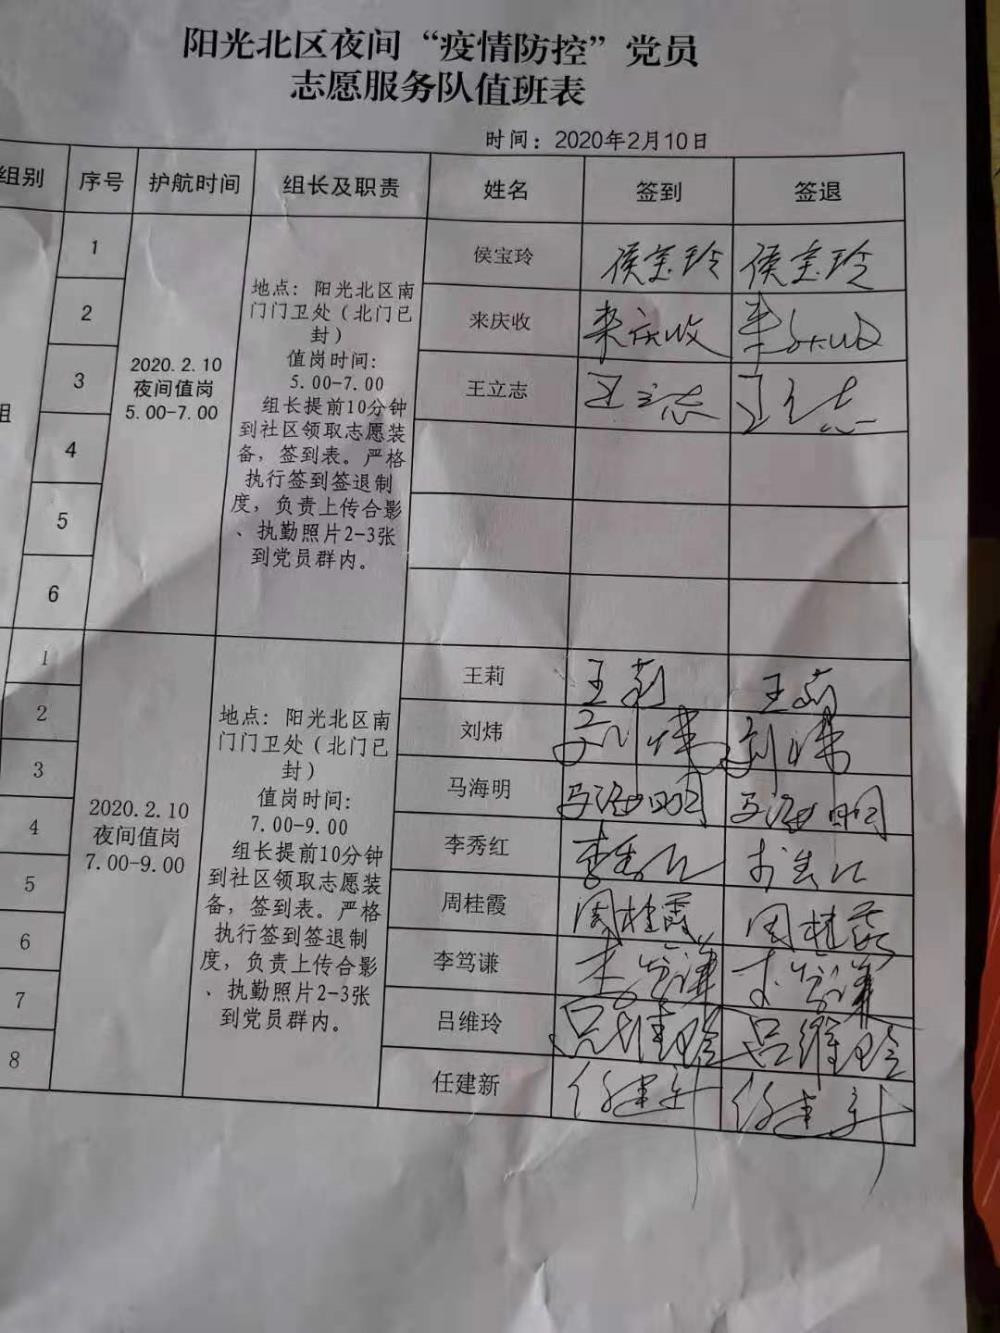 阳光北区夜间“疫情防控”党员
志愿服务队值班表
时间：2020年2月10日
组别 序号 护航时间 组长及职责 姓名 签到 签退
组
1
2
3
4
5
6
2020.2.10
夜间值岗
5.00-7.00
地点：阳光北区南
门门卫处（北门已
封）
值岗时间：
5.00-7.00
组长提前10分钟
到社区领取志愿装
备，签到表。严格
执行签到签退制
度，负责上传合影
、执勤照片2-3张
到党员群内。
侯宝玲 侯宝玲 侯宝玲
来庆收 来庆收 来庆收
王立志 王立志 王立志
1
2
3
4
5
6
7
8
2020.2.10
夜间值岗
7.00-9.00
地点：阳光北区南
门门卫处（北门已
封）
值岗时间：
7.00-9.00
组长提前10分钟
到社区领取志愿装
备，签到表。严格
执行签到签退制
度，负责上传合影
、执勤照片2-3张
到党员群内。
王莉 王莉 王莉
刘炜 刘炜 刘炜
马海明 马海明 马海明
李秀红 李秀红 李秀红
周桂霞 周桂霞 周桂霞
李笃谦 李笃谦 李笃谦
吕维玲 吕维玲 吕维玲
任建新 任建新 任建新